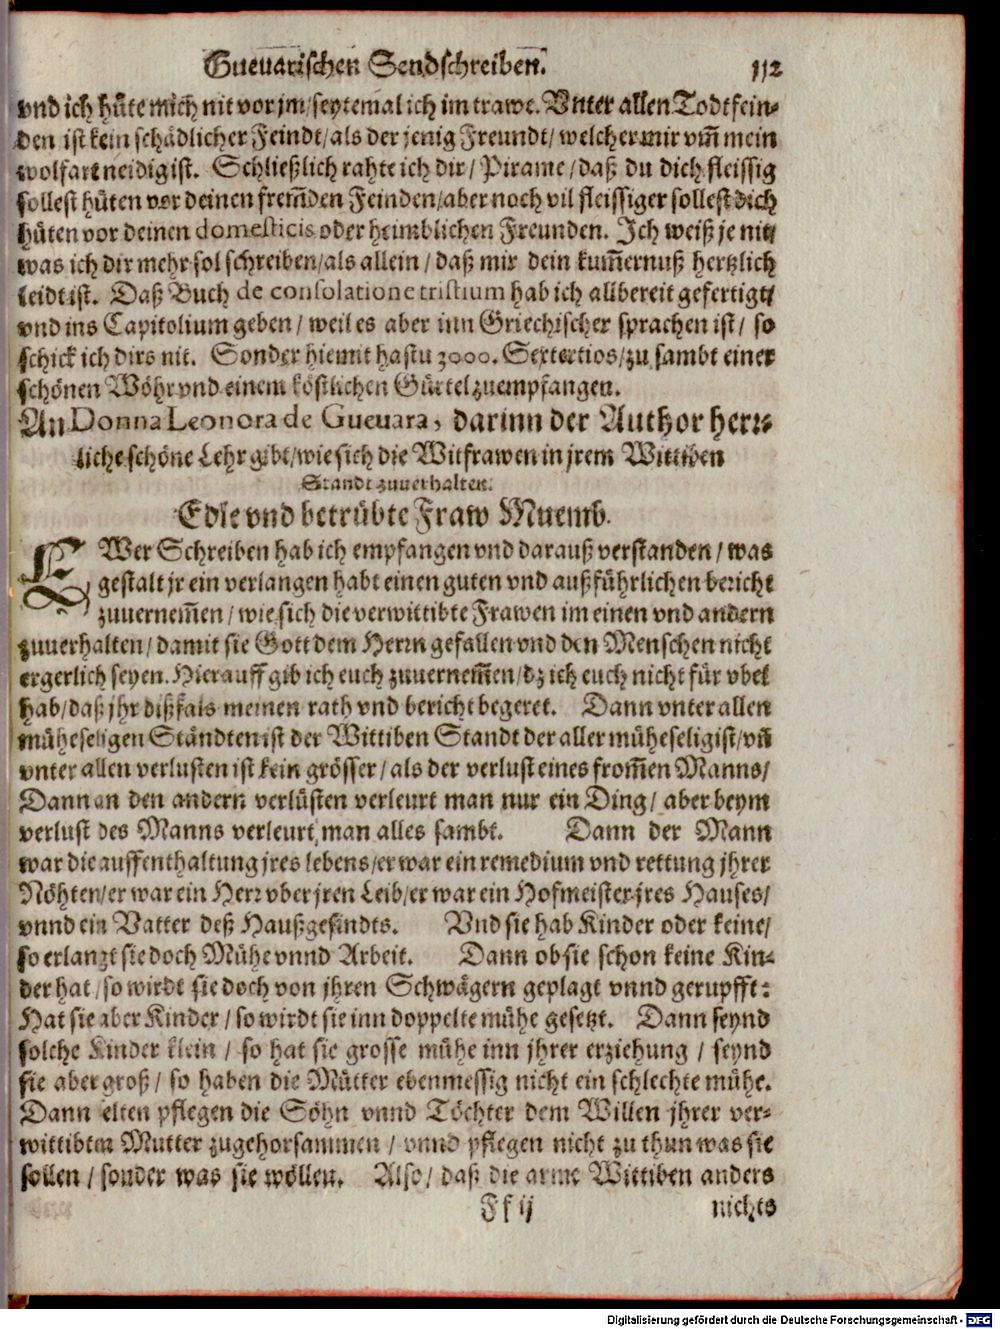 Gueuarischen Sendschreiben. 112
vnd ich hüte mich nit vor jm/seytemal ich im trawe. Vnter allen Todtfein-
den ist kein schädlicher Feindt/als der jenig Freundt/welcher mir vm̃ mein
wolfart neidig ist. Schließlich rahte ich dir/Pirame/daß du dich fleissig
sollest hüten vor deinen frem̃den Feinden/aber noch vil fleissiger sollest dich
hüten vor deinen domesticis oder heimblichen Freunden. Ich weiß je nit/
was ich dir mehr sol schreiben/als allein/daß mir dein kum̃ernuß hertzlich
leidt ist. Daß Buch de consolatione tristium hab ich allbereit gefertigt/
vnd ins Capitolium geben/weil es aber inn Griechischer sprachen ist/so
schick ich dirs nit. Sonder hiemit hastu 3000. Sextertios/zu sambt einer
schönen Wöhr vnd einem köstlichen Gürtel zuempfangen.
An Donna Leonora de Gueuara, darinn der Author herr-
liche schöne Lehr gibt/wie sich die Witfrawen in jrem Wittiben
Standt zuuerhalten.
Edle vnd betrübte Fraw Muemb.
EWer Schreiben hab ich empfangen vnd darauß verstanden/was
gestalt jr ein verlangen habt einen guten vnd außführlichen bericht
zuuernem̃en/wie sich die verwittibte Frawen im einen vnd andern
zuuerhalten/damit sie Gott dem Herrn gefallen vnd den Menschen nicht
ergerlich seyen. Hierauff gib ich euch zuuernem̃en/dz ich euch nicht für vbel
hab/daß jhr dißfals meinen rath vnd bericht begeret. Dann vnter allen
müheseligen Ständten ist der Wittiben Standt der aller müheseligist/vñ
vnter allen verlusten ist kein grösser/als der verlust eines from̃en Manns/
Dann an den andern verlüsten verleurt man nur ein Ding/aber beym
verlust des Manns verleurt man alles sambt. Dann der Mann
war die auffenthaltung jres lebens/er war ein remedium vnd rettung jhrer
Nöhten/er war ein Herr vber jren Leib/er war ein Hofmeister jres Hauses/
vnnd ein Vatter deß Haußgesindts. Vnd sie hab Kinder oder keine/
so erlangt sie doch Mühe vnnd Arbeit. Dann ob sie schon keine Kin-
der hat/so wirdt sie doch von jhren Schwägern geplagt vnnd gerupfft:
Hat sie aber Kinder/so wirdt sie inn doppelte mühe gesetzt. Dann seynd
solche Kinder klein/so hat sie grosse mühe inn jhrer erziehung/seynd
sie aber groß/so haben die Mütter ebenmessig nicht ein schlechte mühe.
Dann elten pflegen die Söhn vnnd Töchter dem Willen jhrer ver-
wittibten Mutter zugehorsammen/vnnd pflegen nicht zu thun was sie
sollen/sonder was sie wöllen. Also/daß die arme Wittiben anders
Ff ij nichts
Digitalisierung gefördert durch die Deutsche Forschungsgemeinschaft - DFG